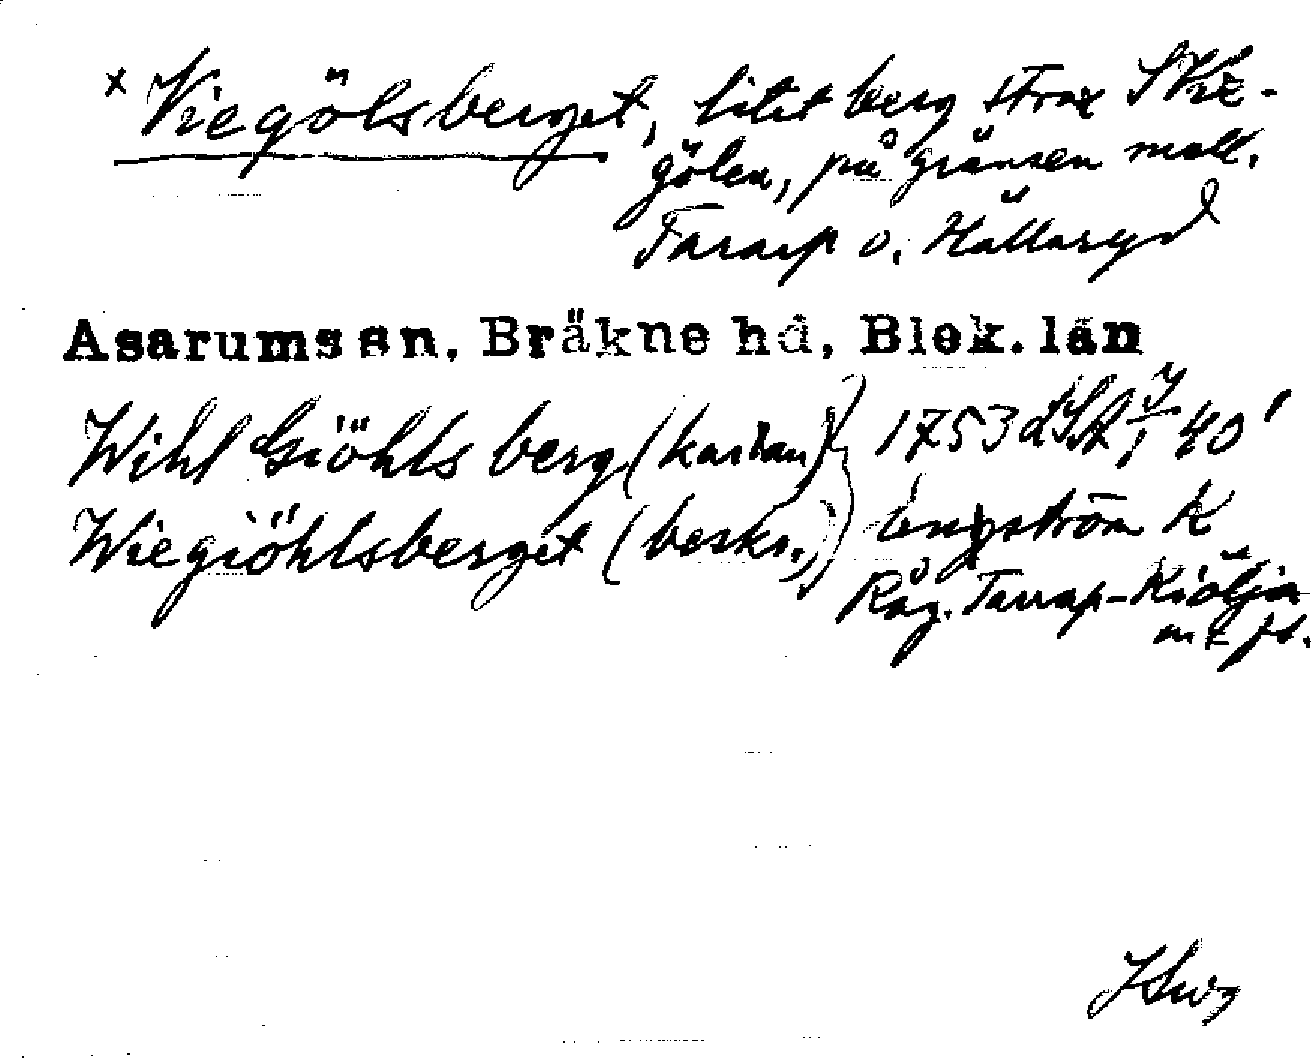 x Viegölsberget, litet berg strax S Vie-
gölen, på gränsen mell.
Tararp o. Hällaryd
Asarums sn, Bräkne hd, Blek. län
Wihl Giöhls berg (kartan)
Wiegiöhlsberget (beskr.)
1753 LSA 40'
Engström K
Råg. Tararp-Kiölja
m fl.